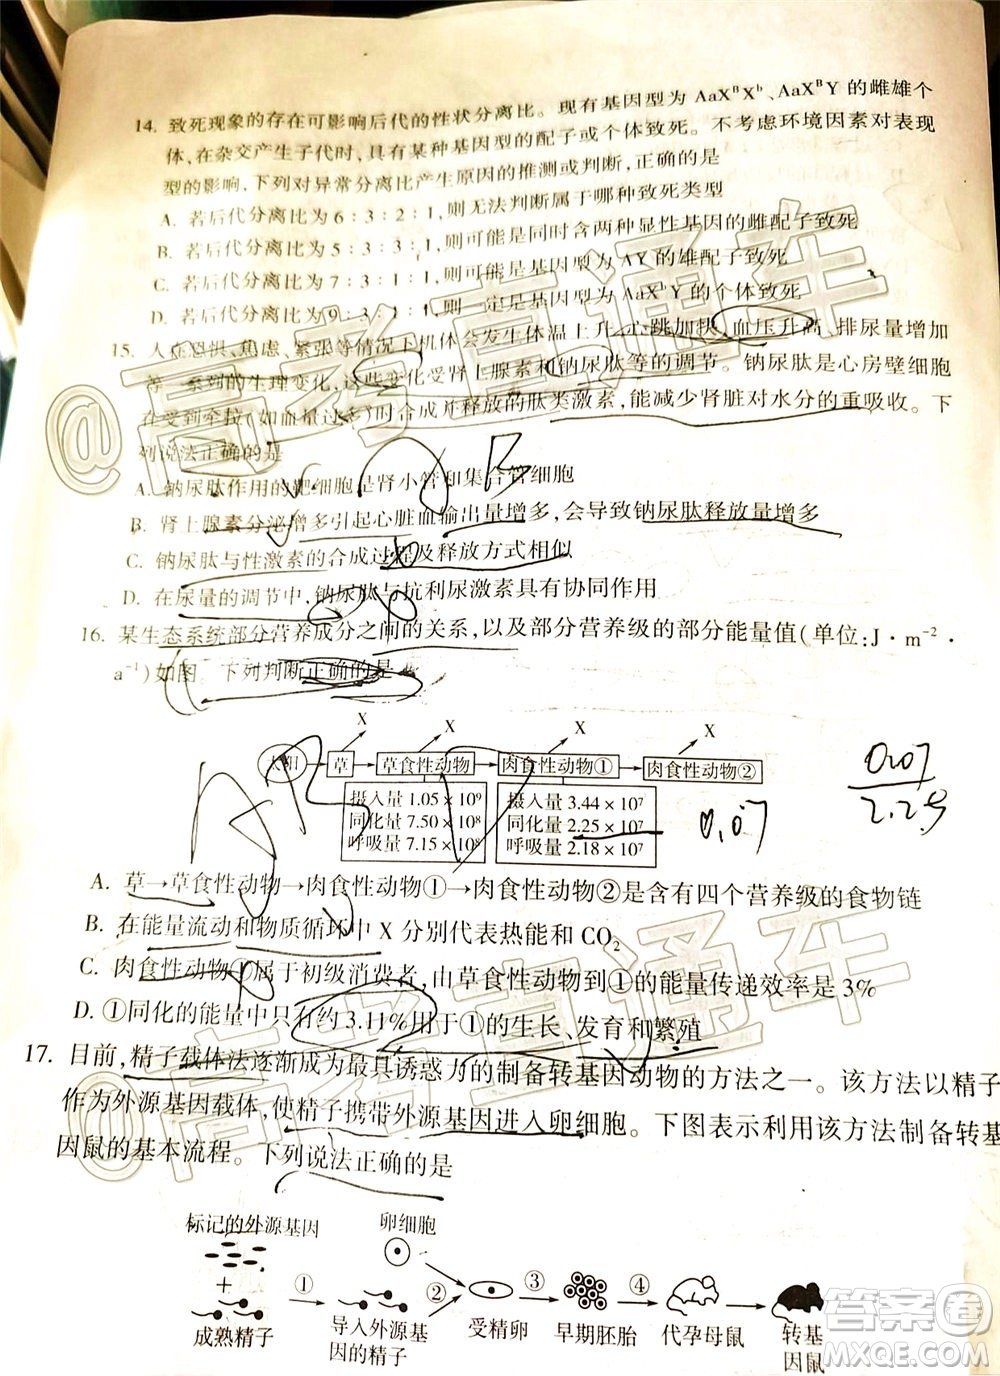 14. 致死现象的存在可影响后代的性状分离比。现有基因型为 AaXᴮXᵇ、AaXᴮY 的雌雄个
体,在杂交产生子代时,具有某种基因型的配子或个体致死。不考虑环境因素对表现
型的影响,下列对异常分离比产生原因的推测或判断,正确的是
A. 若后代分离比为 6：3：2：1,则无法判断属于哪种致死类型
B. 若后代分离比为 5：3：3：1,则可能是同时含两种显性基因的雌配子致死
C. 若后代分离比为 7：3：1：1,则可能是基因型为 AY 的雄配子致死
D. 若后代分离比为 9：3：1：1,则一定是基因型为 AaXᵇY 的个体致死
15. 人在恐惧、焦虑、紧张等情况下机体会发生体温上升、心跳加快、血压升高、排尿量增加
等一系列的生理变化,这些变化受肾上腺素和钠尿肽等的调节。钠尿肽是心房壁细胞
在受到牵拉(如血量过多)时合成并释放的肽类激素,能减少肾脏对水分的重吸收。下
列说法正确的是
A. 钠尿肽作用的靶细胞是肾小管和集合管细胞
B. 肾上腺素分泌增多引起心脏血输出量增多,会导致钠尿肽释放量增多
C. 钠尿肽与性激素的合成过程及释放方式相似
D. 在尿量的调节中,钠尿肽与抗利尿激素具有协同作用
16. 某生态系统部分营养成分之间的关系,以及部分营养级的部分能量值(单位:J·m⁻²·
a⁻¹)如图。下列判断正确的是
X X X X
太阳 草 草食性动物 肉食性动物① 肉食性动物②
摄入量 1.05×10⁹ 摄入量 3.44×10⁷
同化量 7.50×10⁸ 同化量 2.25×10⁷
呼吸量 7.15×10⁸ 呼吸量 2.18×10⁷
0.07
0.07
2.25
A B
A. 草→草食性动物→肉食性动物①→肉食性动物②是含有四个营养级的食物链
B. 在能量流动和物质循环中 X 分别代表热能和 CO₂
C. 肉食性动物①属于初级消费者,由草食性动物到①的能量传递效率是 3%
D. ①同化的能量中只有约 3.11%用于①的生长、发育和繁殖
17. 目前,精子载体法逐渐成为最具诱惑力的制备转基因动物的方法之一。该方法以精子
作为外源基因载体,使精子携带外源基因进入卵细胞。下图表示利用该方法制备转基
因鼠的基本流程。下列说法正确的是
标记的外源基因 卵细胞
+ ① ② ③ ④
成熟精子 导入外源基因的精子 受精卵 早期胚胎 代孕母鼠 转基因鼠
@高考直通车
@高考直通车
答案圈
MXQE.COM